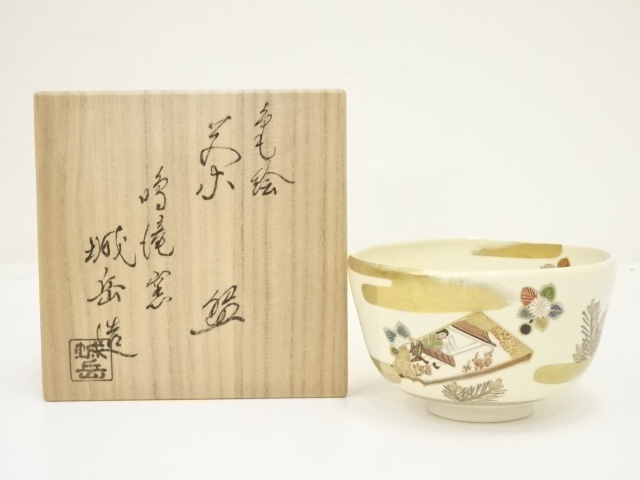 色絵
茶 盌
鳴滝窯
城岳造
城岳